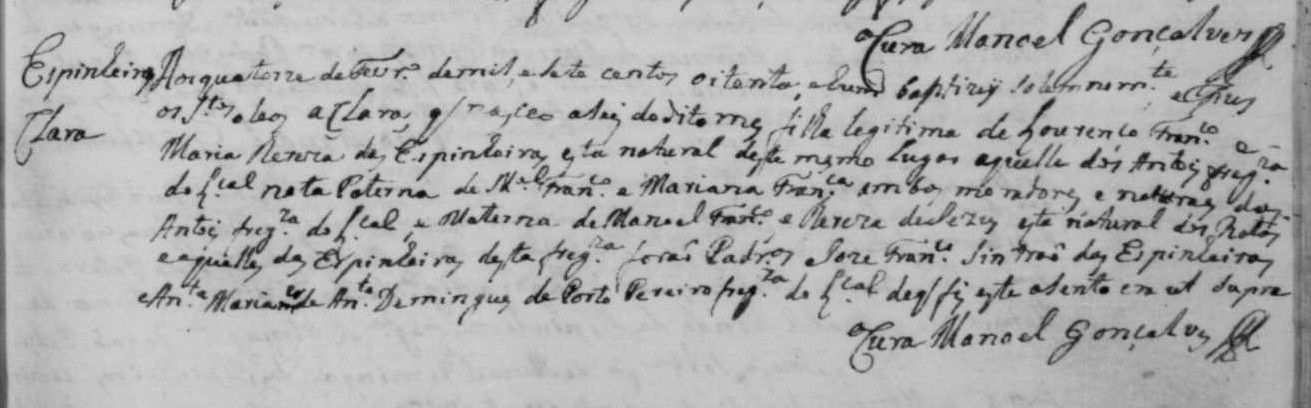 o Cura Manoel Gonçalves
Espinheira Aos quatorze de Fevr.º de mil, e sete centos oitenta, e hum baptizey solemnem.te e pus
Clara os S.tos oleos a Clara, q nasceo a seis do dito mes filha legitima de Lourenço Fran.co e
Maria Thereza das Espinheiras esta natural deste mesmo Lugar aquelle dos Antoẽs freg.za
do Lcal neta Paterna de M.el Fran.co e Mariana Fran.ca ambos moradores e naturaes dos
Antoẽs freg.za do Lcal, e Materna de Manoel Fran.co e Thereza de esta natural dos Ratos
e aquelle das Espinheiras desta freg.za foraõ Padr.os Joze Fran.co Sintraõ das Espinheiras
e An.ta Maria de An.to Domingues de Porto Pereiro freg.za do Lcal de q fis este asento era ut supra
o Cura Manoel Gonçalves